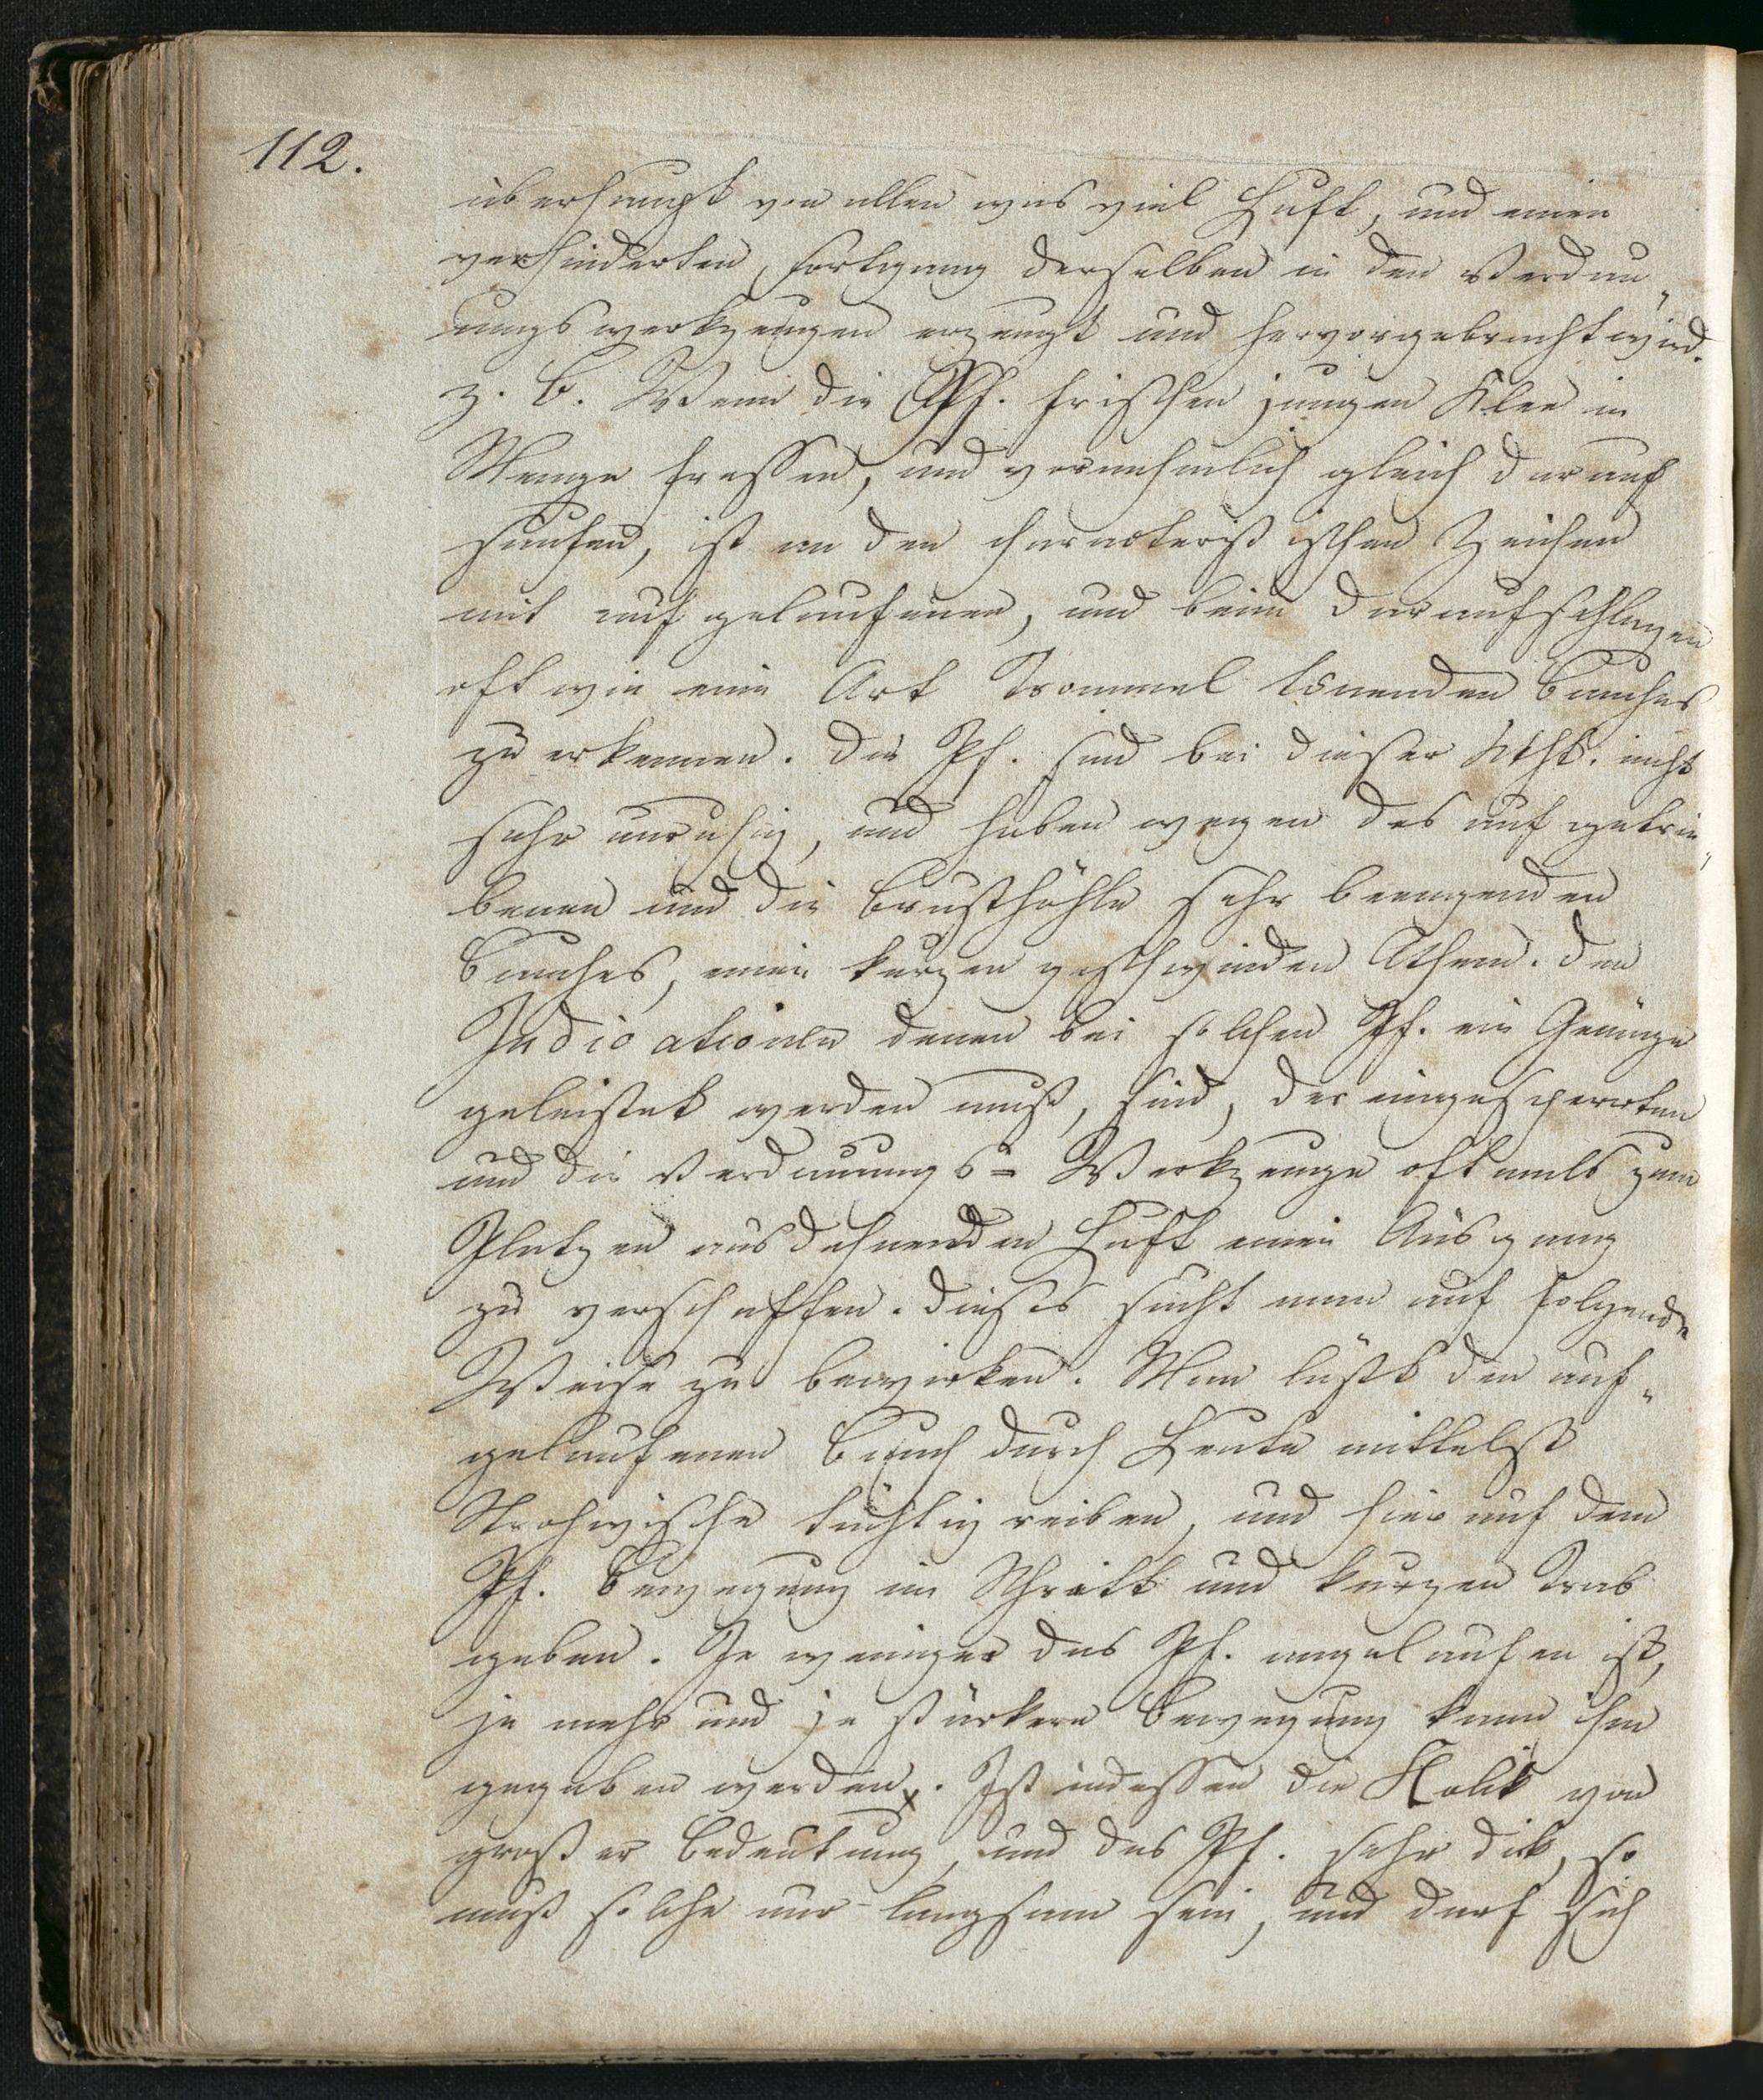 112.
überhaupt von allen was viel Luft, und einen
verhinderten, fortgang derselben in den Verdau„
ungswerkzeugen erzeugt und hervorgebracht wird.
z. B. Wenn die Pf. frischen jungen Klee in
Menge fressen, und vornehmlich gleich darauf
saufen, ist an den characteristischen Zeichen
mit aufgelaufenen, und beim daraufschlagen
oft wie eine Art Trommel tönenden Bauches
zu erkennen. Die Pf. sind bei dieser nicht
sehr unruhig, und haben wegen des aufgetrie„
benen und die Brusthöhle sehr beengenden
Bauches, einen kurzen geschwinden Athem. Den
Indicationen denen bei solchen Pf. ein Genüge
geleistet werden muß, sind, der eingesperrten
und die Verdauungs=Werkzeuge oftmals zum
Platzen ausdehnenden Luft einen Ausgang
zu verschaffen. Dieses sucht man auf folgende
Weise zu bewirken. Man läßt den auf„
gelaufenen Bauch durch Leute mittelst
Strohwische tüchtig reiben, und hierauf dem
Pf. Bewegung im Schritt und kurzen Trab
geben. Je weniger das Pf. angelaufen ist,
je mehr und je stärkere Bewegung kann ihm
gegeben werden. Ist indessen die Kolik von
großer Bedeutung, und das Pf. sehr dick, so
muß solche nur langsam sein, und darf sich